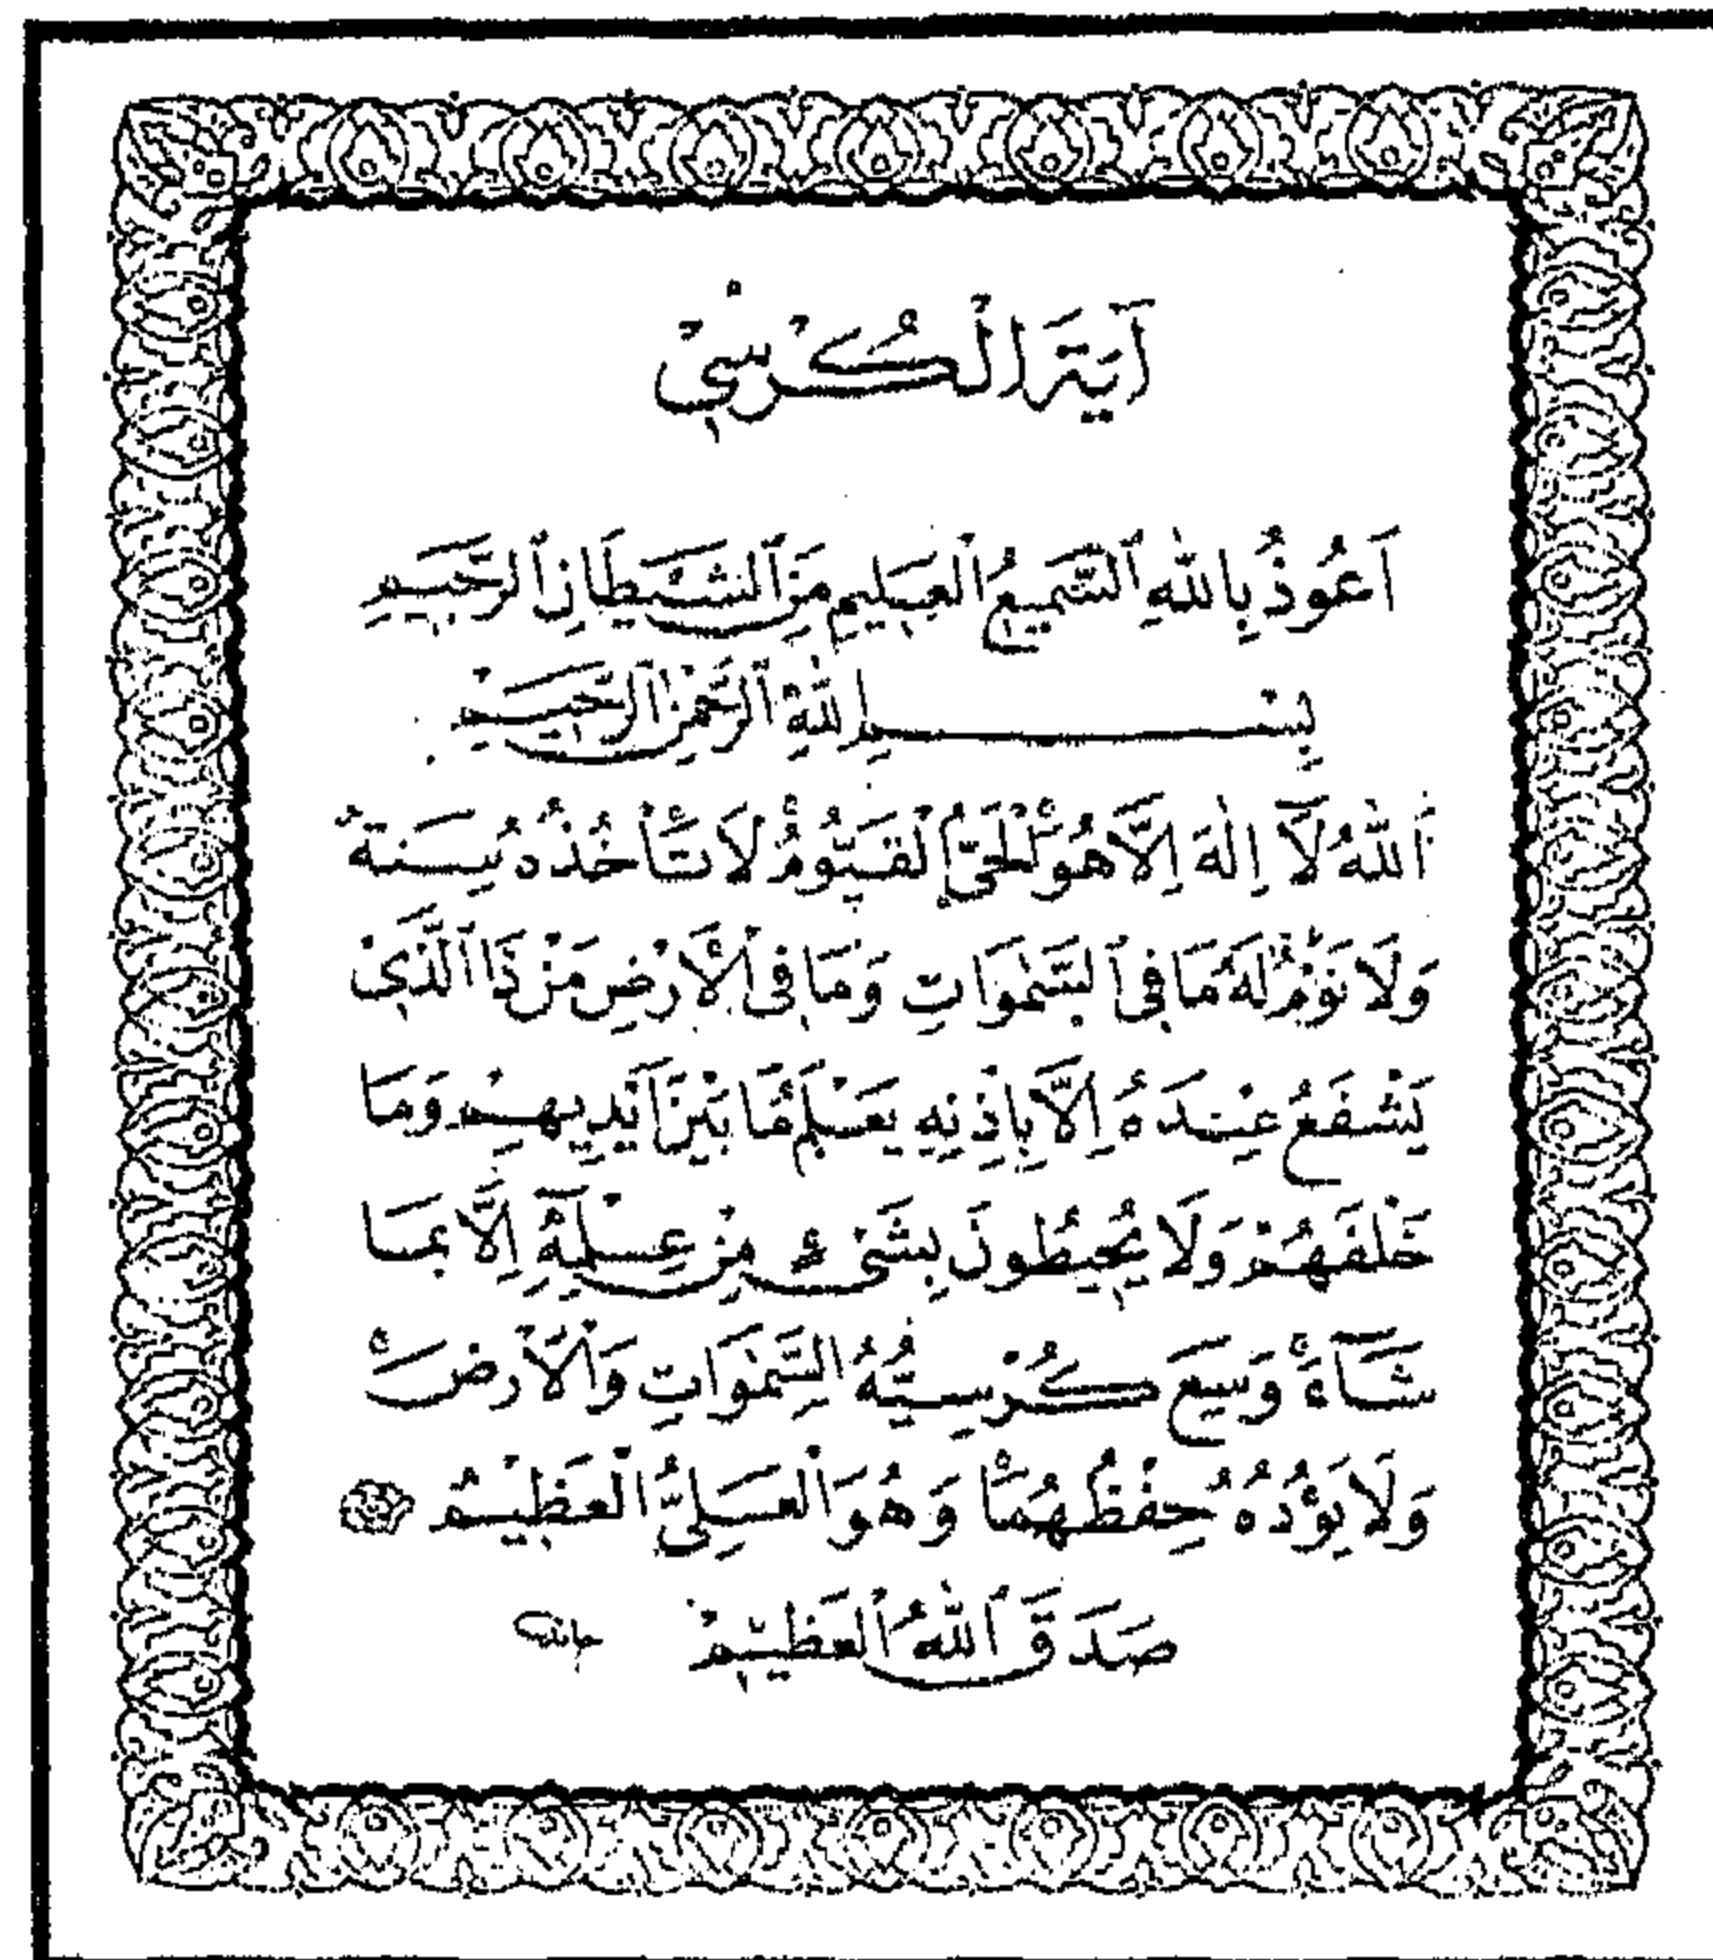 آيَةَ الْكُرْسِيْ
اَعُوذُ بِاللّٰهِ ٱلسَّمِيعُ ٱلْعَلِيمِ مِنَ ٱلشَّيْطَانِ ٱلرَّجِيمِ
بِسْمِ اللّٰهِ ٱلرَّحْمٰنِ ٱلرَّحِيمْ
اَللّٰهُ لَآ اِلٰهَ اِلَّا هُوَۚ اَلْحَيُّ الْقَيُّومُۚ لَا تَأْخُذُهُ سِنَةٌ
وَلَا نَوْمٌۜ لَهُ مَا فِي ٱلسَّمٰوَاتِ وَمَا فِي ٱلْاَرْضِۜ مَنْ ذَا ٱلَّذِي
يَشْفَعُ عِنْدَهُ اِلَّا بِاِذْنِهِ يَعْلَمُ مَا بَيْنَ اَيْدِيهِمْ وَمَا
خَلْفَهُمْ وَلَا يُحِيطُونَ بِشَيْءٍ مِنْ عِلْمِهِٓ اِلَّا بِمَا
شَآءَۚ وَسِعَ كُرْسِيُّهُ السَّمٰوَاتِ وَالْاَرْضَۚ
وَلَا يَؤُدُهُ حِفْظُهُمَاۚ وَهُوَ الْعَلِيُّ الْعَظِيمُ
صَدَقَ ٱللّٰهُ ٱلْعَظِيمْ